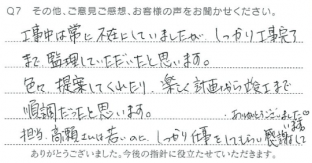 Q7 その他、ご意見ご感想、お客様の声をお聞かせください。
工事中は常に不在にしていましたが、しっかり工事完了
まで監理していただいたと思います。
色々、提案してくれたり、楽しく計画から竣工まで
順調だったと思います。
ありがとうございました
担当、高瀬さんは若いのに、しっかり仕事をしてもらい感謝して
います
ありがとうございました。今後の指針に役立たせていただきます。